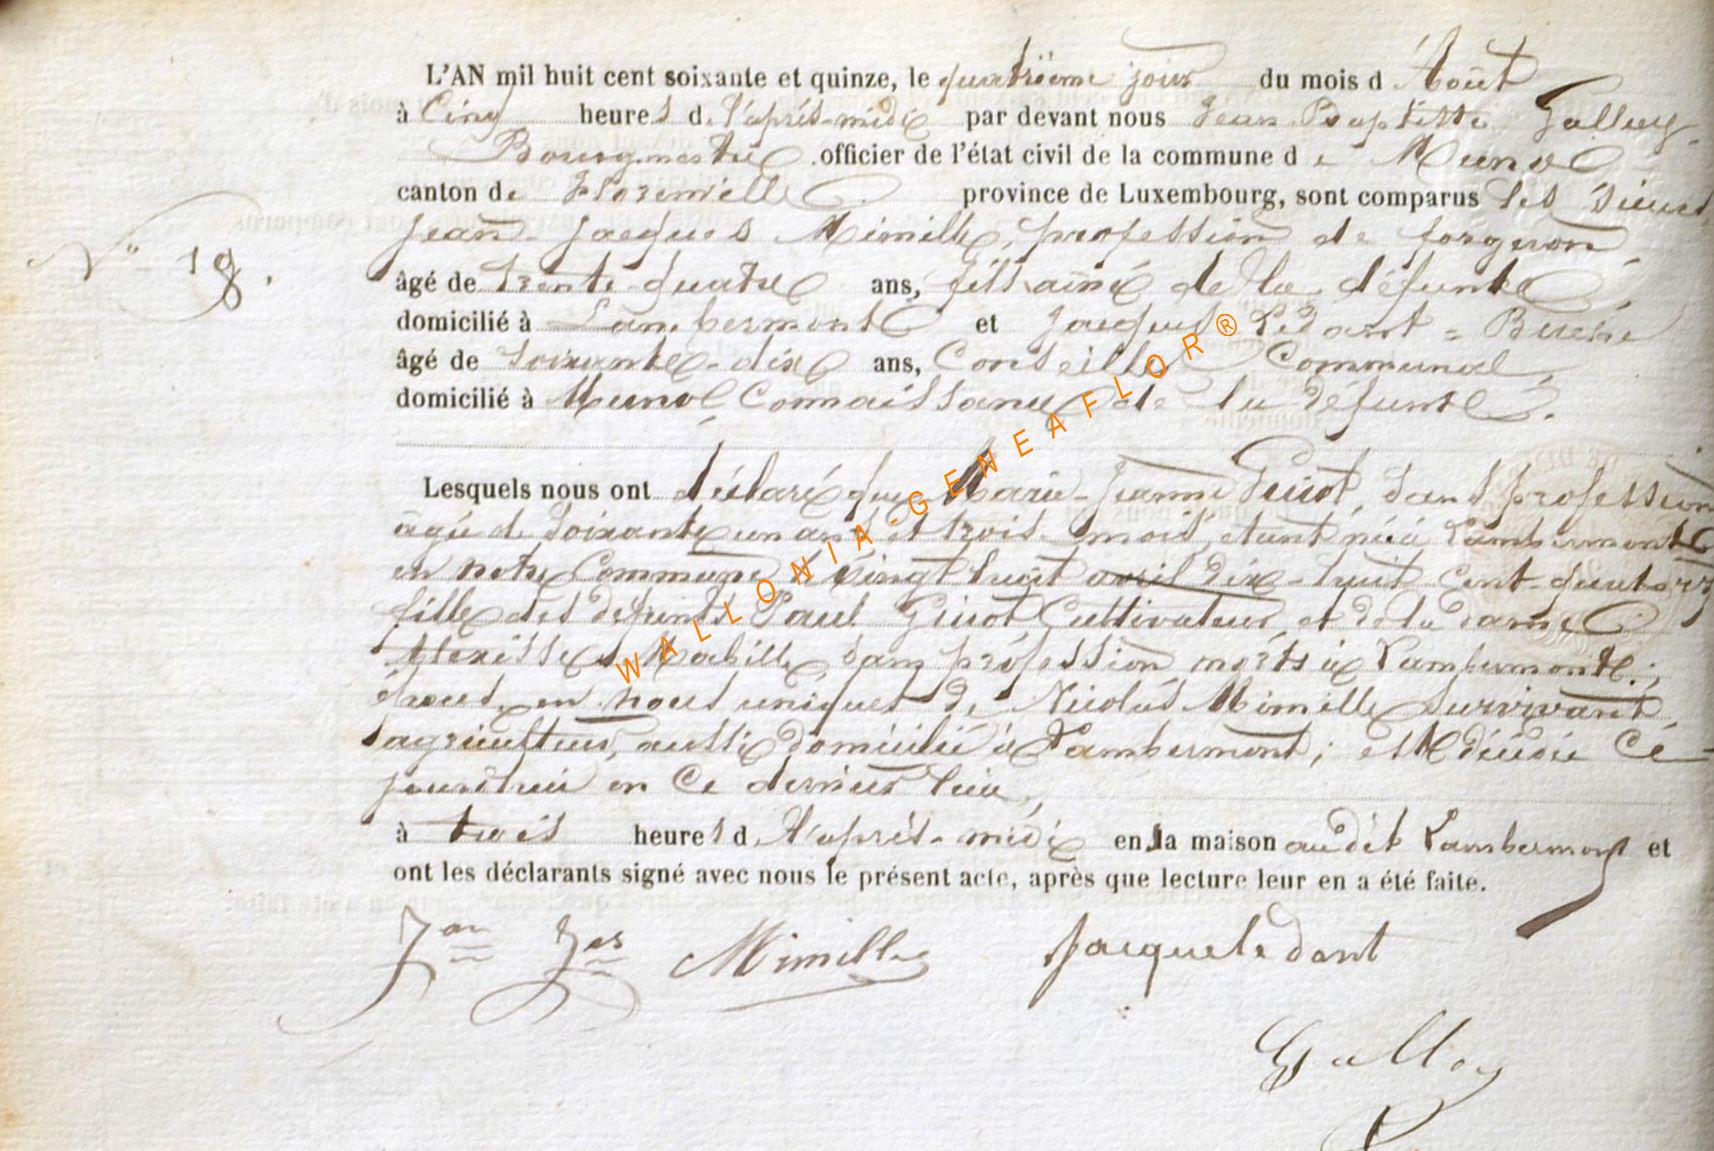 L'AN mil huit cent soixante et quinze, le quatrième jour du mois d'Août
à Cinq heures de l'après-midi par devant nous Jean Baptiste Galloy
Bourgmestre officier de l'état civil de la commune de Muno
canton de Florenville province de Luxembourg, sont comparus les sieurs
Jean-Jacques Mimille, profession de forgeron,
N° 18.
âgé de trente quatre ans, fils ainé de la défunte,
domicilié à Lambermont et Jacques Lédant =
âgé de soixante-dix ans, Conseiller Communal,
domicilié à Muno Connaissance de la défunte.
Lesquels nous ont déclaré que Marie-Jeanne Guiot, sans profession
âgée de soixante un ans et trois mois, étant née à Lambermont
en notre Commune le vingt huit avril dix-huit cent-quatorze
fille des défunts Paul Guiot Cultivateur et de la dame
Mabille, sans profession morts à Lambermont;
épouse en uniques de Nicolas Mimille survivant,
agriculteur, aussi domicilié à Lambermont; est décédée ce-
jourd'hui en ce dernier lieu,
à trois heures de l'après-midi en sa maison audit Lambermont et
ont les déclarants signé avec nous le présent acte, après que lecture leur en a été faite.
Jan Jes Mimille Jacque ledant
Galloy
WALLONIA-GENEAFLOR®